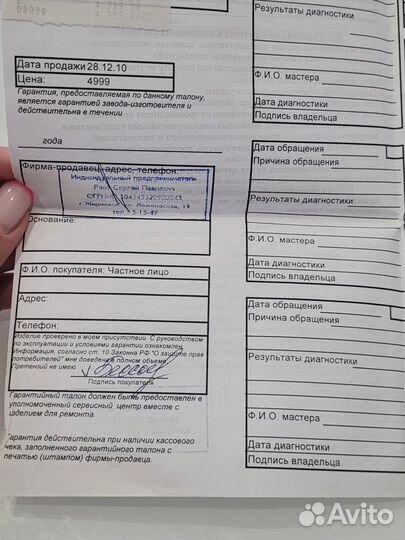 00090
4 999.00
4 999.00
Дата продажи 28.12.10
Цена: 4999
Гарантия, предоставляемая по данному талону,
является гарантией завода-изготовителя и
действительна в течении
года
Фирма-продавец, адрес, телефон:
Индивидуальный предприниматель
Сергей Павлович
ОГРНИП
г. ул. Ломоносова, 19
тел. 3-15-49
Основание:
Ф.И.О. покупателя: Частное лицо
Адрес:
Телефон:
Изделие проверено в моем присутствии. С руководством
по эксплуатации и условиями гарантии ознакомлен.
Информация, согласно ст. 10 Закона РФ "О защите прав
потребителей" мне доведена в полном объеме.
Претензий не имею
Подпись покупателя
Гарантийный талон должен быть предоставлен в
уполномоченный сервисный центр вместе с
изделием для ремонта.
Гарантия действительна при наличии кассового
чека, заполненного гарантийного талона с
печатью (штампом) фирмы-продавца.
Результаты диагностики
Ф.И.О. мастера
Дата диагностики
Подпись владельца
Дата обращения
Причина обращения
Результаты диагностики
Ф.И.О. мастера
Дата диагностики
Подпись владельца
Дата обращения
Причина обращения
Результаты диагностики
Ф.И.О. мастера
Дата диагностики
Подпись владельца
Avito